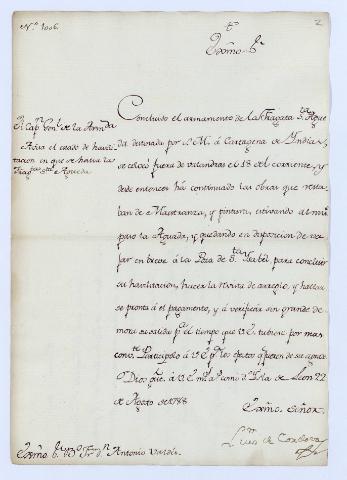 N.º 1006.
2
Exmo. Sr.
El Capn. Genl. de la Armda.
Avisa el estado de habili-
tacion en que se halla la
Fragta. Sta. Agueda
Concluso el armamento de la Fragata Sta. Ague
da destinada por S. M. á Cartagena de Indias
se colocó fuera de valandras el 18 del corriente, y
desde entonces há continuado las obras que resta
ban de Maestranza, y pintura, estivando al mis
mo paso la Aguada, y quedando en disposicion de va
jar en breve á la Poza de Sta. Isabel para concluir
su havilitacion, hacer la Revista de arreglo, y hallar
se pronta á el pagamento, y á verificar sin grande de
mora su salida pa. el tiempo que V. E. tubiere por mas
convte. Participolo á V. E. pa. los efectos que fueren de su agrado
Dios gue. á V. E. ms. as. como deseo. Isla de Leon 22
de Agosto de 1788
Exmo. Señor
Luis de Cordova
Exmo. Sr. Bo. Fr. Dn. Antonio Valdés.